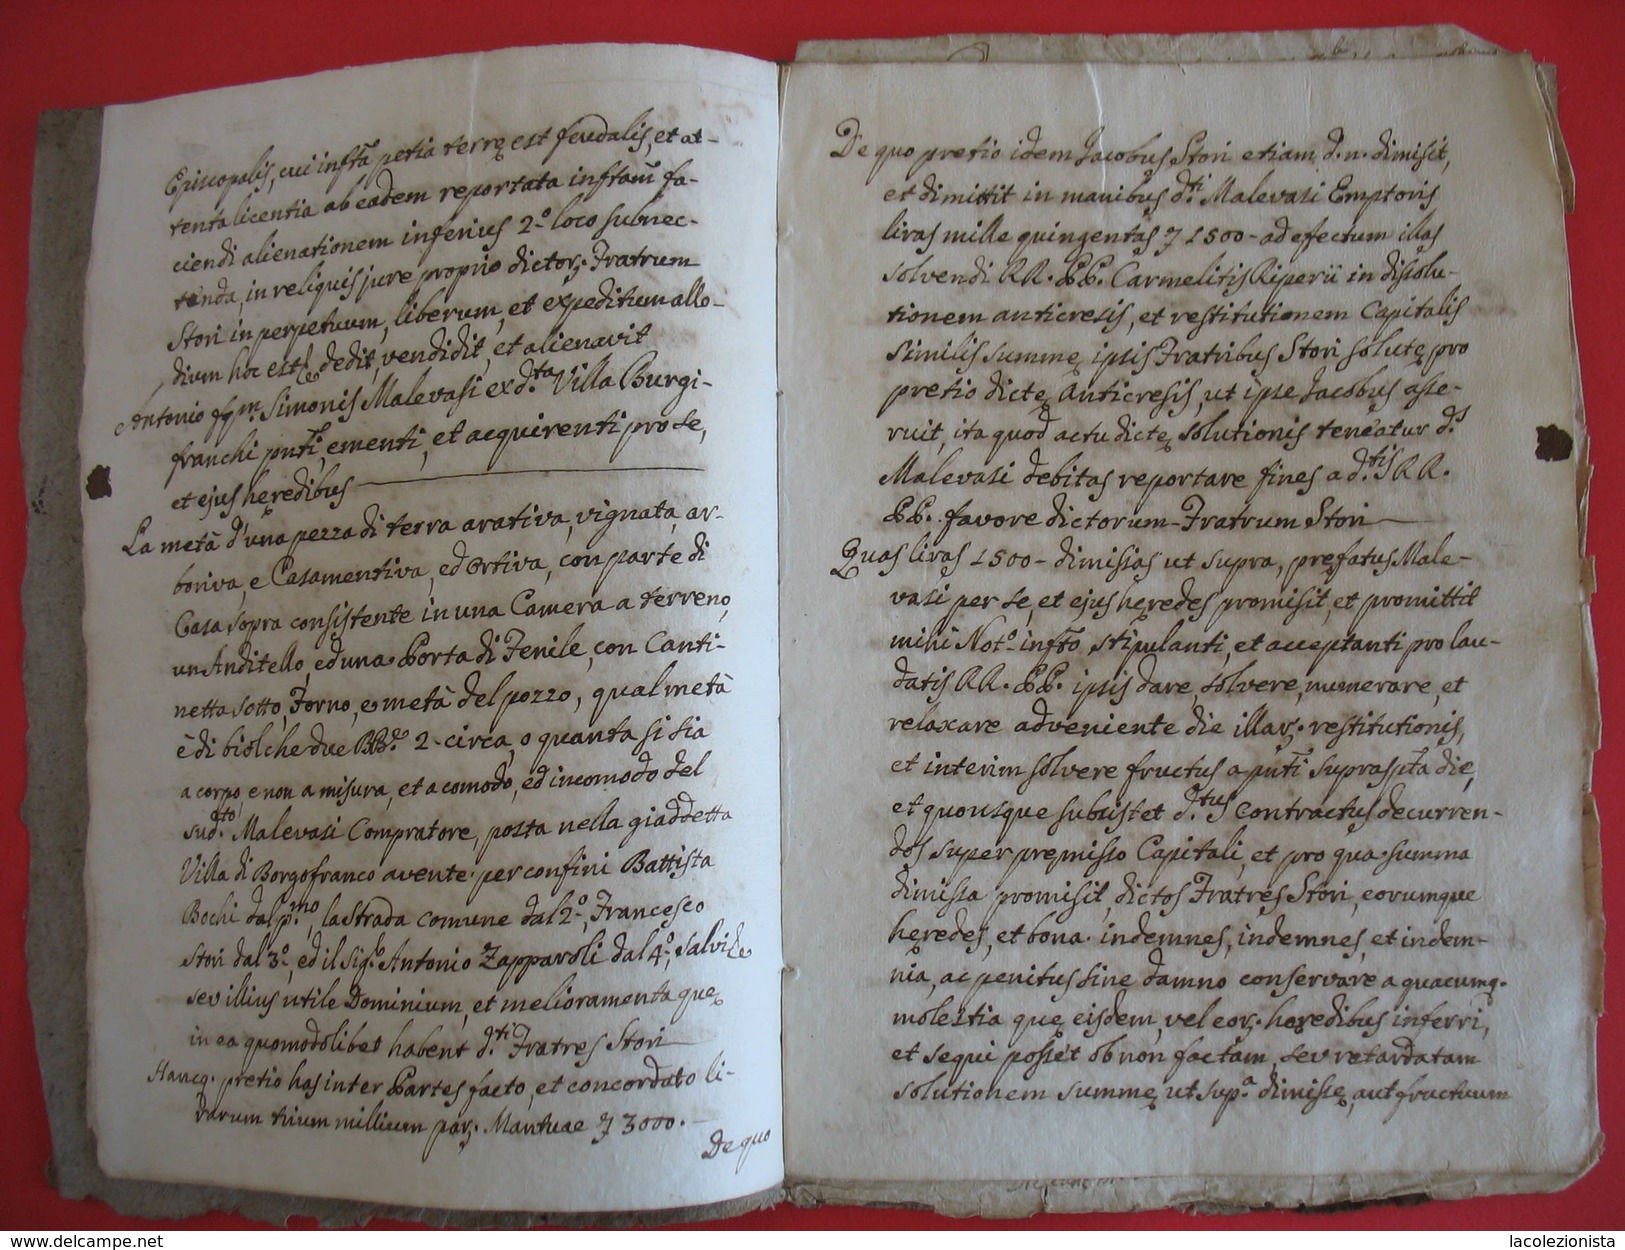 Episcopalis, cui inftã petia terrę est feudalis, et at-
tenta licentia ab eadem reportata inftam̃ fa-
ciendi alienationem inferius 2.º loco subnec-
tenda, in reliquis jure proprio dictor; Fratrum
Stori in perpetuum, liberum, et expeditum allo-
dium hoc est &c dedit, vendidit, et alienavit
Antonio fq.m Simonis Malevasi ex d.ta Villa Burgi-
franchi pnti, ementi, et acquirenti pro se,
et ejus hęredibus
La metà d'una pezza di terra arativa, vignata, ar-
boriva, e Casamentiva, ed Ortiva, con parte di
Casa sopra consistente in una Camera a terreno,
un Anditello, ed una Porta di Fenile, con Canti-
netta sotto, Forno, e metà del pozzo, qual metà
è di biolche due BB.e 2- circa, o quanta si sia
a corpo, e non a misura, et a comodo, ed incomodo del
sud.to Malevasi Compratore, posta nella giaddetta
Villa di Borgofranco avente per confini Battista
Bochi dal p.mo, la Strada comune dal 2.º, Francesco
Stori dal 3.º, ed il Sig.r Antonio Zapparoli dal 4.º, salvi &c
sev illius utile Dominium, et melioramenta quę
in ea quomodolibet habent d.ti Fratres Stori
Hancq. pretio has inter Partes facto, et concordato li-
brarum trium millium par; Mantuae 3000.-
De quo
De quo pretio idem Jacobus Stori etiam d. n. dimisit,
et dimittit in manibus d.ti Malevasi Emptoris
liras mille quingentas 1500- ad efectum illas
solvendi RR. PP. Carmelitis Riperii in dissolu-
tionem anticresis, et restitutionem Capitalis
similis summę ipsis Fratribus Stori solutę pro
pretio dictę Anticresis, ut ipse Jacobus asse-
ruit, ita quod actu dictę solutionis teneatur d.s
Malevasi debitas reportare fines a d.tis RR.
PP. favore dictorum Fratrum Stori
Quas liras 1500- dimissas ut supra, prefatus Male-
vasi per se, et ejus hęredes promisit, et promittit
mihi Not.º infto stipulanti, et acceptanti pro lau-
datis RR. PP. ipsis dare, solvere, numerare, et
relaxare adveniente die illar; restitutionis,
et interim solvere fructus a pnti supraspta die,
et quousque subsistet d.tus Contractus decurren-
dos super premisso Capitali, et pro qua summa
dimissa promisit, dictos Fratres Stori, eorumque
hęredes, et bona indemnes, indemnes, et indem-
nia, ac penitus sine damno conservare a quacumq.
molestia quę eisdem, vel eor; hęredibus inferri,
et sequi posset ob non factam, sev retardatam
solutionem summę, ut sup.a dimissę, aut fructuum
www.delcampe.net
lacolezionista